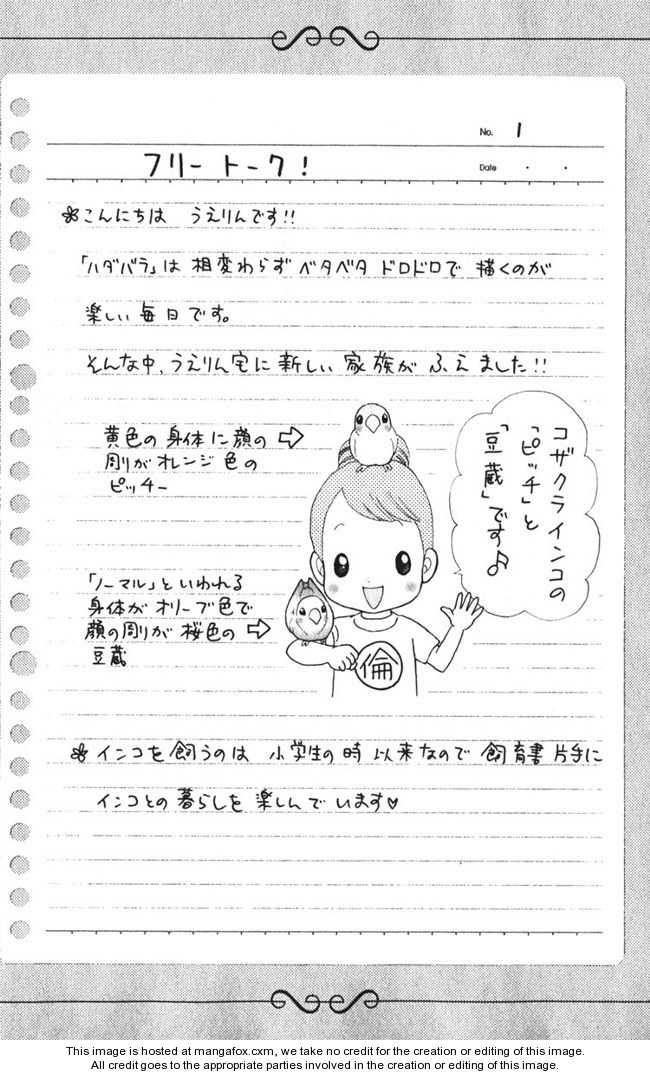 No. 1
フリートーク!
Date ・ ・
✽こんにちは うえりんです!!
「ハダバラ」は 相変わらず ベタベタ ドロドロで 描くのが
楽しい 毎日です。
そんな中、うえりん宅に 新しい 家族が ふえました!!
黄色の 身体に 顔の ⇨
周りがオレンジ 色の
ピッチー
コザクラインコの
「ピッチ」と
「豆蔵」です♪
「ノーマル」と いわれる
身体が オリーブ色で
顔の周りが 桜色の ⇨
豆蔵
倫
✽ インコを 飼うのは 小学生の時 以来なので 飼育書 片手に
インコとの 暮らしを 楽しんで います♡
This image is hosted at mangafox.cxm, we take no credit for the creation or editing of this image.
All credit goes to the appropriate parties involved in the creation or editing of this image.